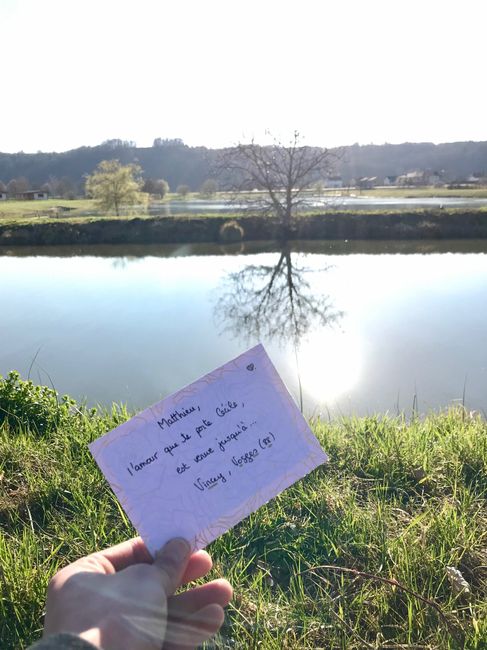 Matthieu,
l'amour que te porte Cécile,
est venue jusqu'à...
Vincey, Vosges (88)